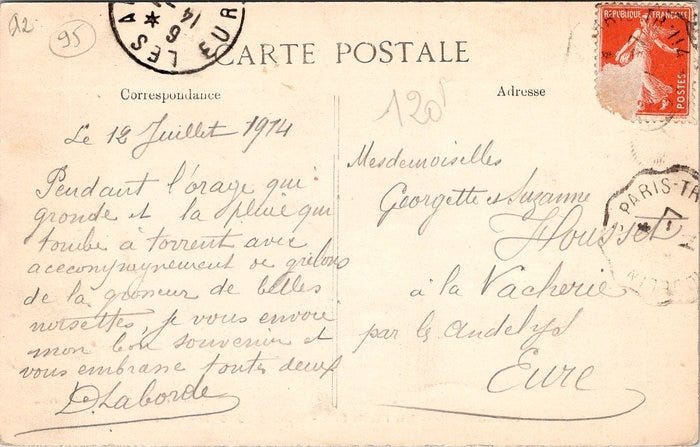 92
95
LES A
14
EUR
CARTE POSTALE
REPUBLIQUE FRANÇAISE
POSTES
Correspondance
Adresse
120f
Le 12 Juillet 1914
Pendant l'orage qui
gronde et la pluie qui
tombe à torrent avec
acecompaynement de grelons
de la grosseur de belles
noisettes, je vous envoie
mon bon souvenir et
vous embrasse toutes deux
D. Laborde
Mesdemoiselles
Georgette et Suzanne
Housset
à la Vacherie
par les Andelys
Eure
PARIS-TR